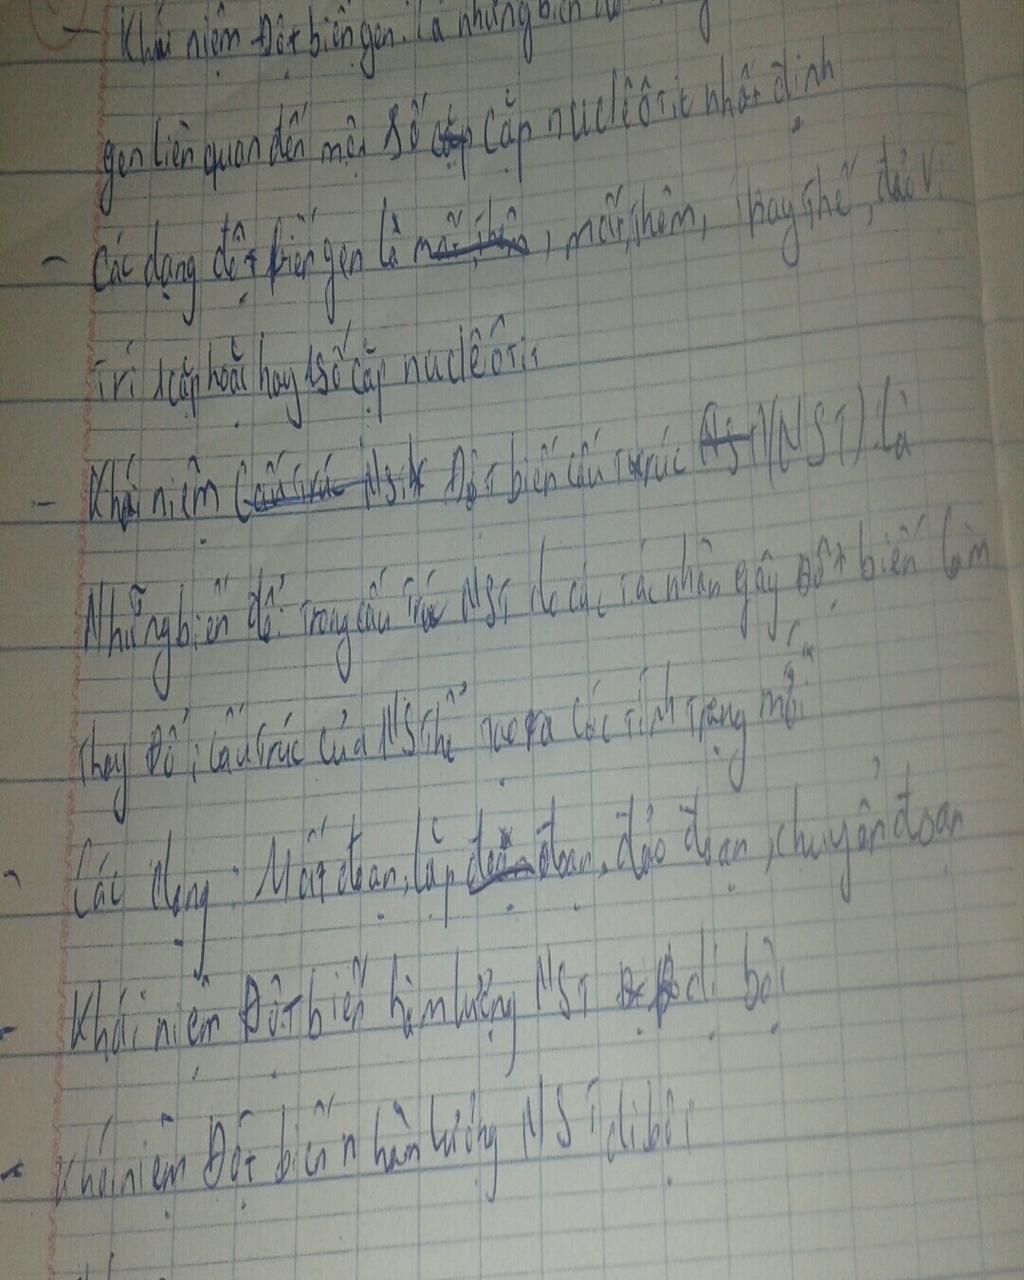 - Khái niệm Đột biến gen. là những biến
gen liên quan đến một số cặp nuclêôtit nhất định
- Các dạng đột biến gen là, mất, thêm, thay thế, đảo v
trí 1 cặp hoặc hay 1 số cặp nuclêôtit
- Khái niệm Đột biến cấu trúc (NST) là
Những biến đổi trong cấu trúc NST do các tác nhân gây đột biến làm
thay đổi cấu trúc của NST các tính trạng mới
- Các dạng: Mất đoạn, lặp đoạn, đảo đoạn, chuyển đoạn
- Khái niệm Đột biến hàm lượng NST dị bội
- Khái niệm Đột biến hàm lượng NST dị bội